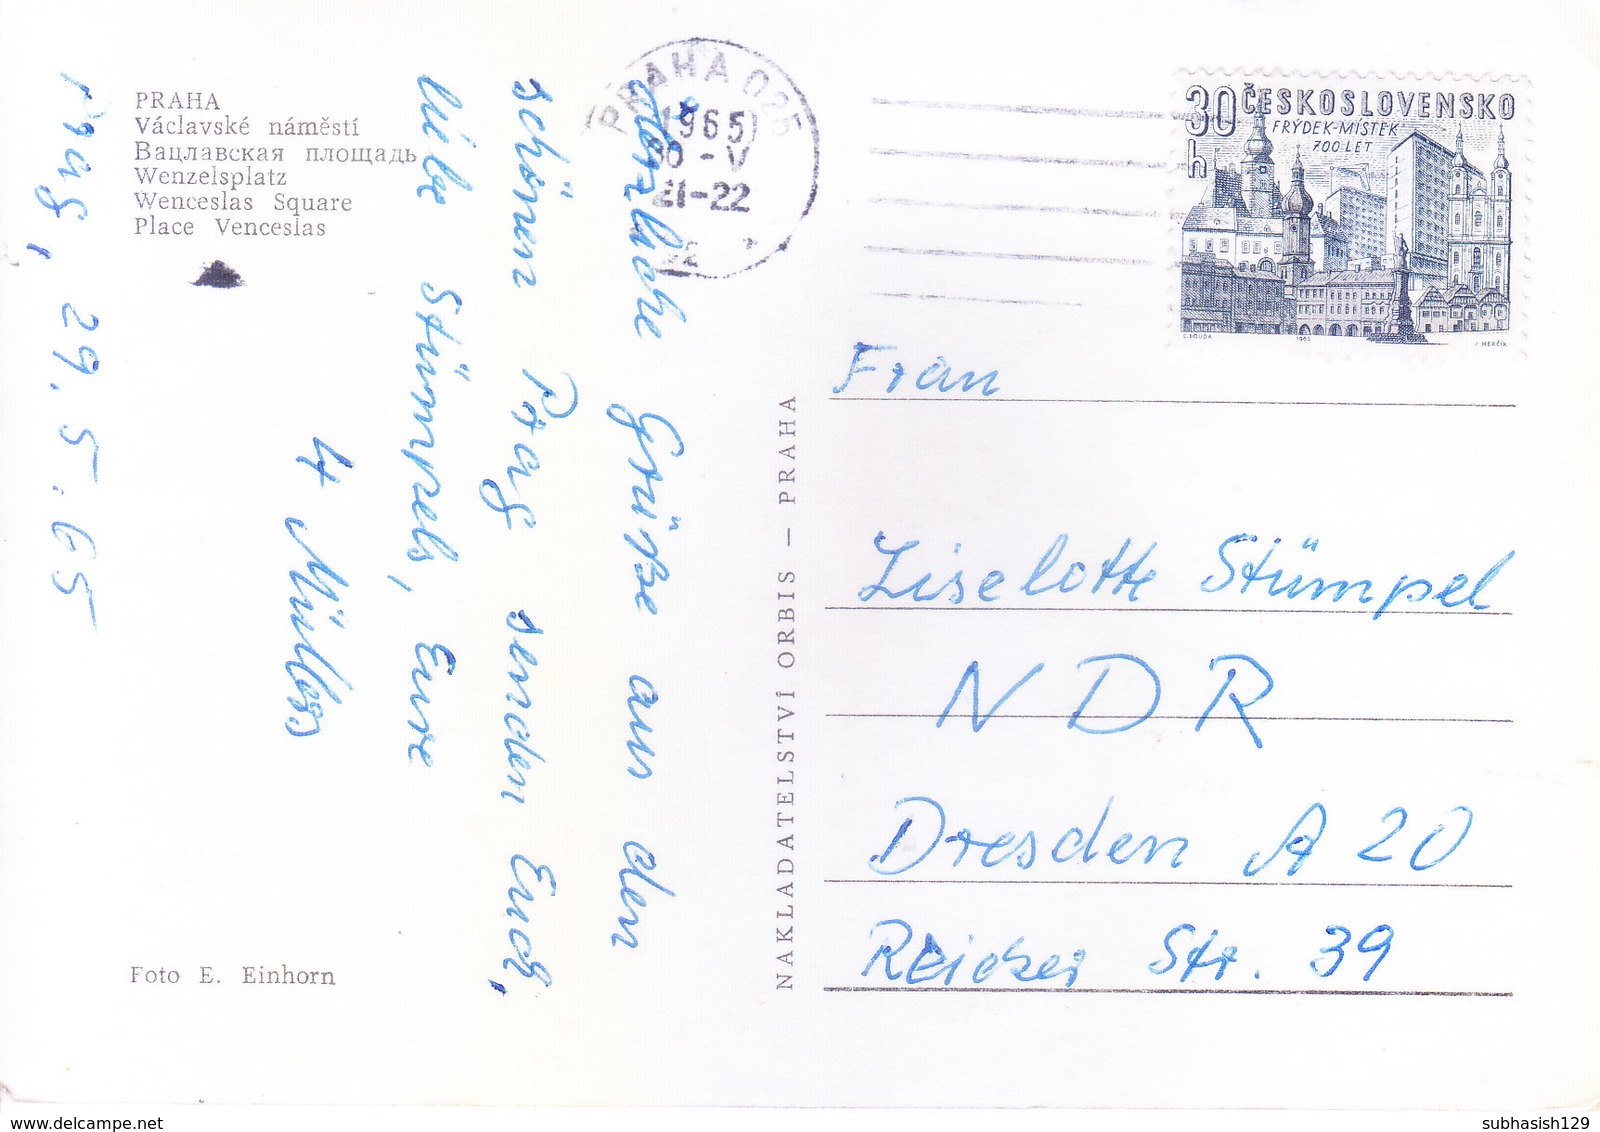 PRAHA
Václavské náměstí
Вацлавская площадь
Wenzelsplatz
Wenceslas Square
Place Venceslas
Prag, 29.5.65
Herzliche Grüße aus den
schönen Prag senden Euch,
liebe Stümpels, Eure
4 Müllers
Foto E. Einhorn
NAKLADATELSTVÍ ORBIS – PRAHA
PRAHA 025
1965
30 -V
21-22
30 ČESKOSLOVENSKO
h FRÝDEK-MÍSTEK
700 LET
C. BOUDA 1965 J. HERČÍK
Frau
Liselotte Stümpel
NDR
Dresden A 20
Reicker Str. 39
subhasish129